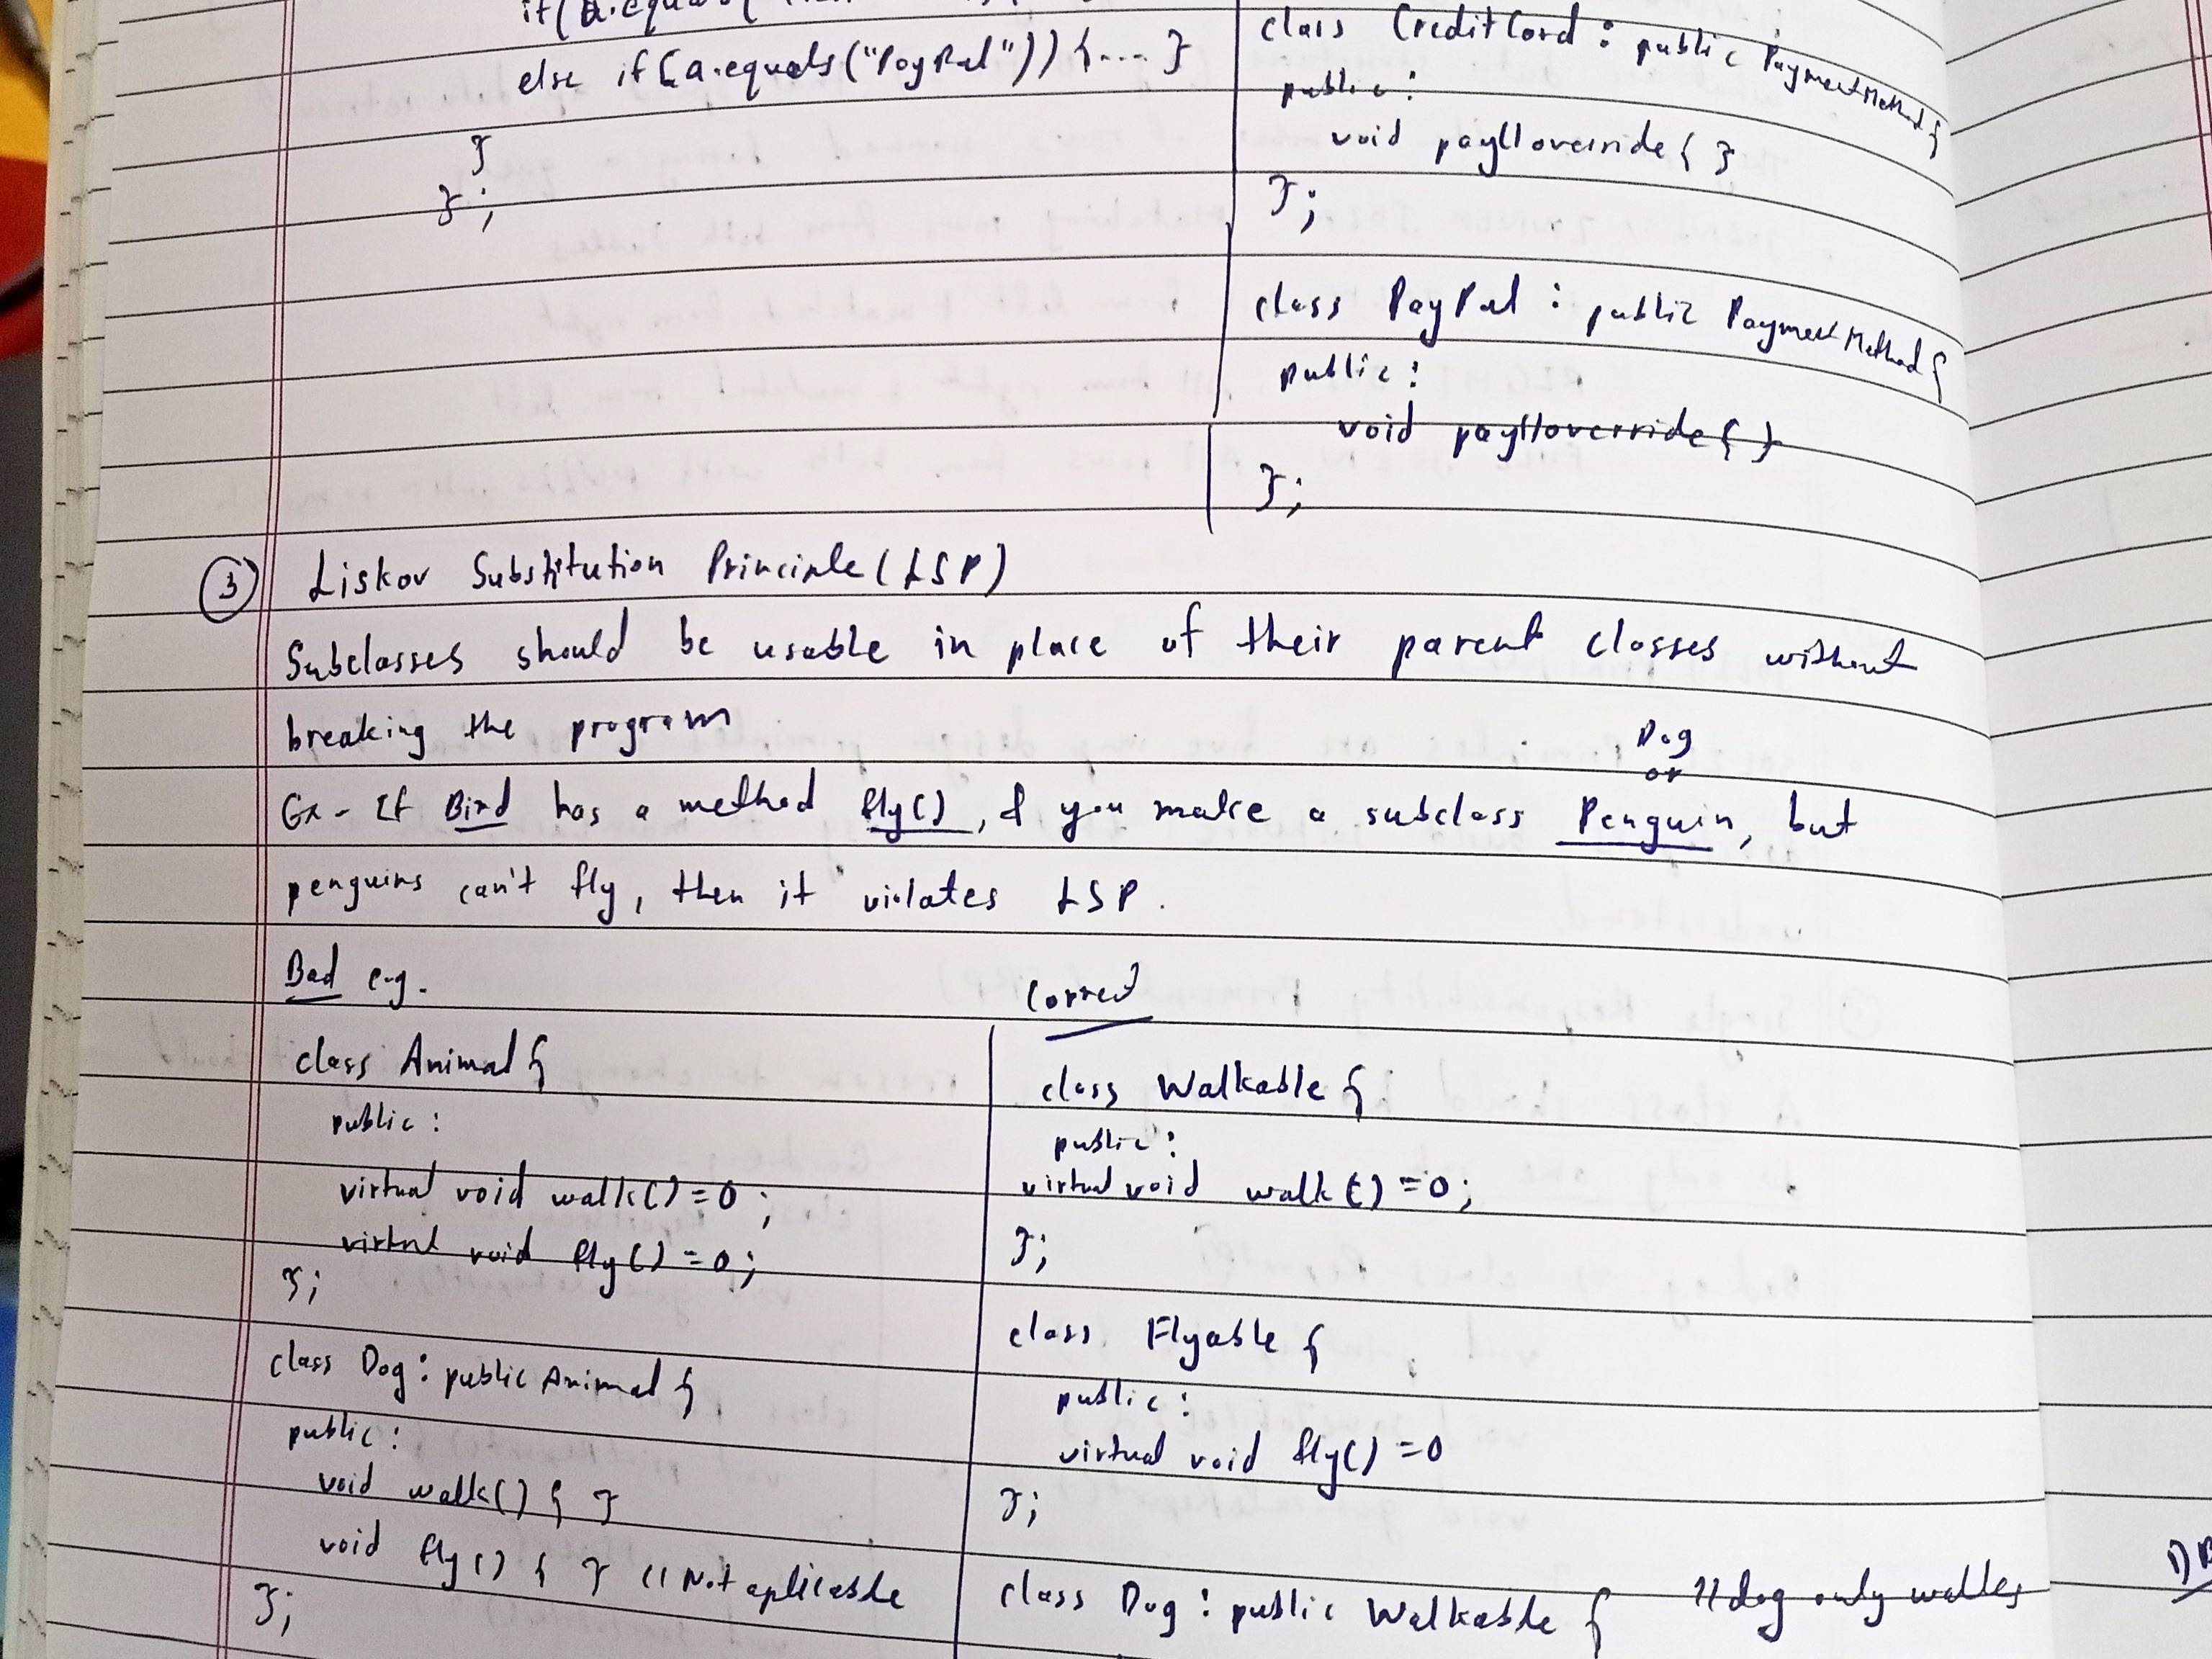 else if(a.equals("PayPal")) {.... }
}
};
class CreditCard : public PaymentMethod {
public :
void pay() override { }
};
class PayPal : public PaymentMethod {
public :
void pay() override { }
};
3 Liskov Substitution Principle (LSP)
Subclasses should be usable in place of their parent classes without
breaking the program
Dog
or
Ex - If Bird has a method fly(), & you make a subclass Penguin, but
penguins can't fly, then it violates LSP.
Bad e.g.
class Animal {
public :
virtual void walk() = 0 ;
virtual void fly() = 0 ;
};
class Dog : public Animal {
public :
void walk() { }
void fly() { } // Not aplicable
};
Correct
class Walkable {
public :
virtual void walk() = 0 ;
};
class Flyable {
public :
virtual void fly() = 0
};
class Dog : public Walkable { // dog only walks